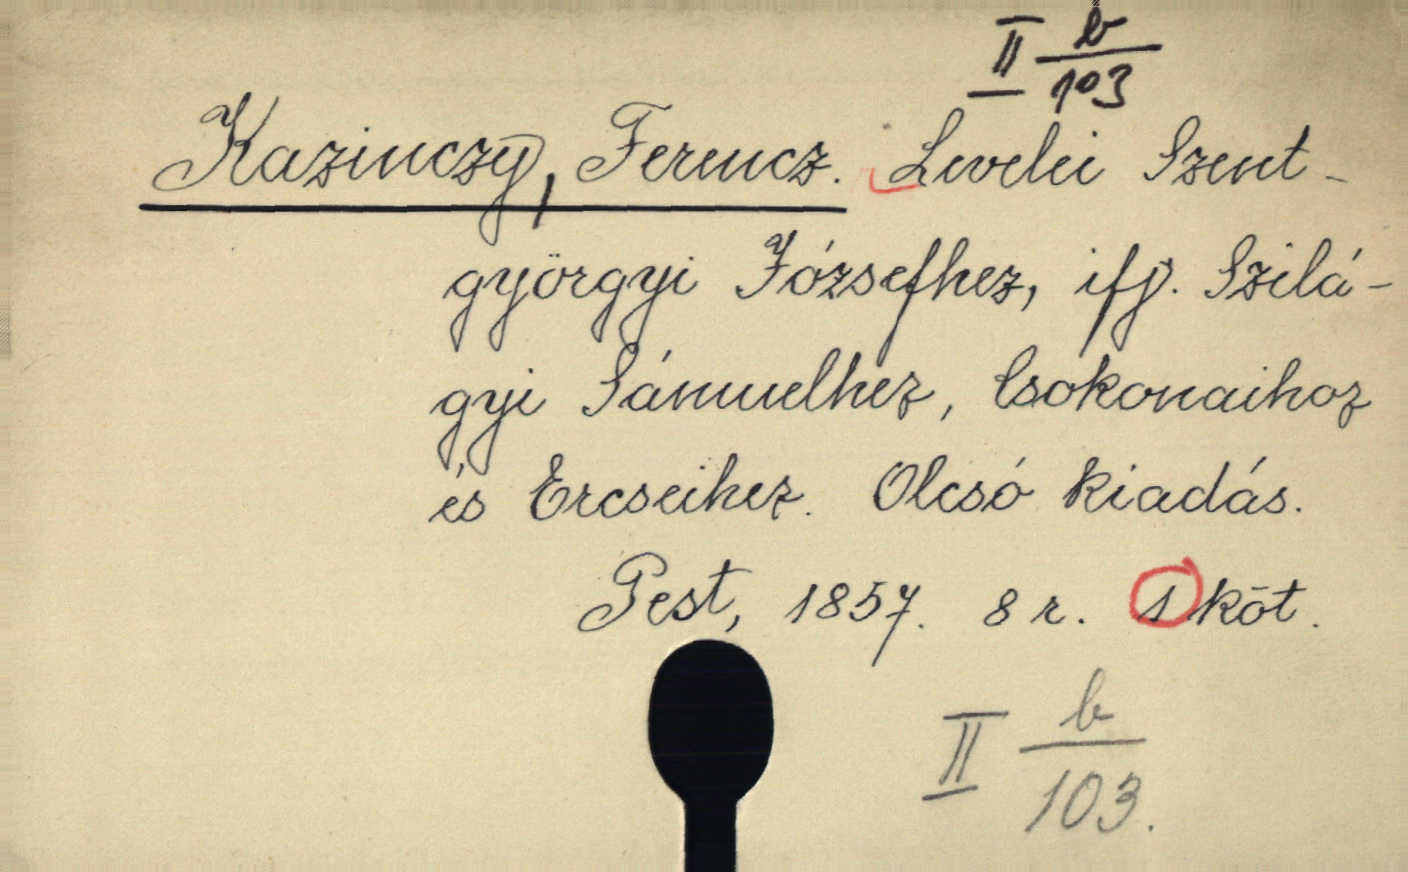 II b/103
Kazinczy, Ferencz. Levelei Szent-
györgyi Józsefhez, ifj. Szilá-
gyi Sámuelhez, Csokonaihoz
és Ercseihez. Olcsó kiadás.
Pest, 1857. 8 r. 1 köt.
II b/103.